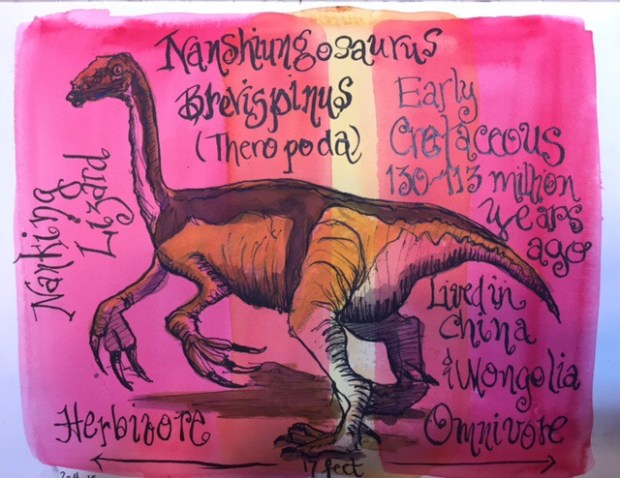 Nanshiungosaurus
Brevispinus
(Theropoda)
Early
Cretaceous
130-113 million
years
ago
Nanking
Lizard
Lived in
China
& Mongolia
Herbivore
Omnivore
17 feet